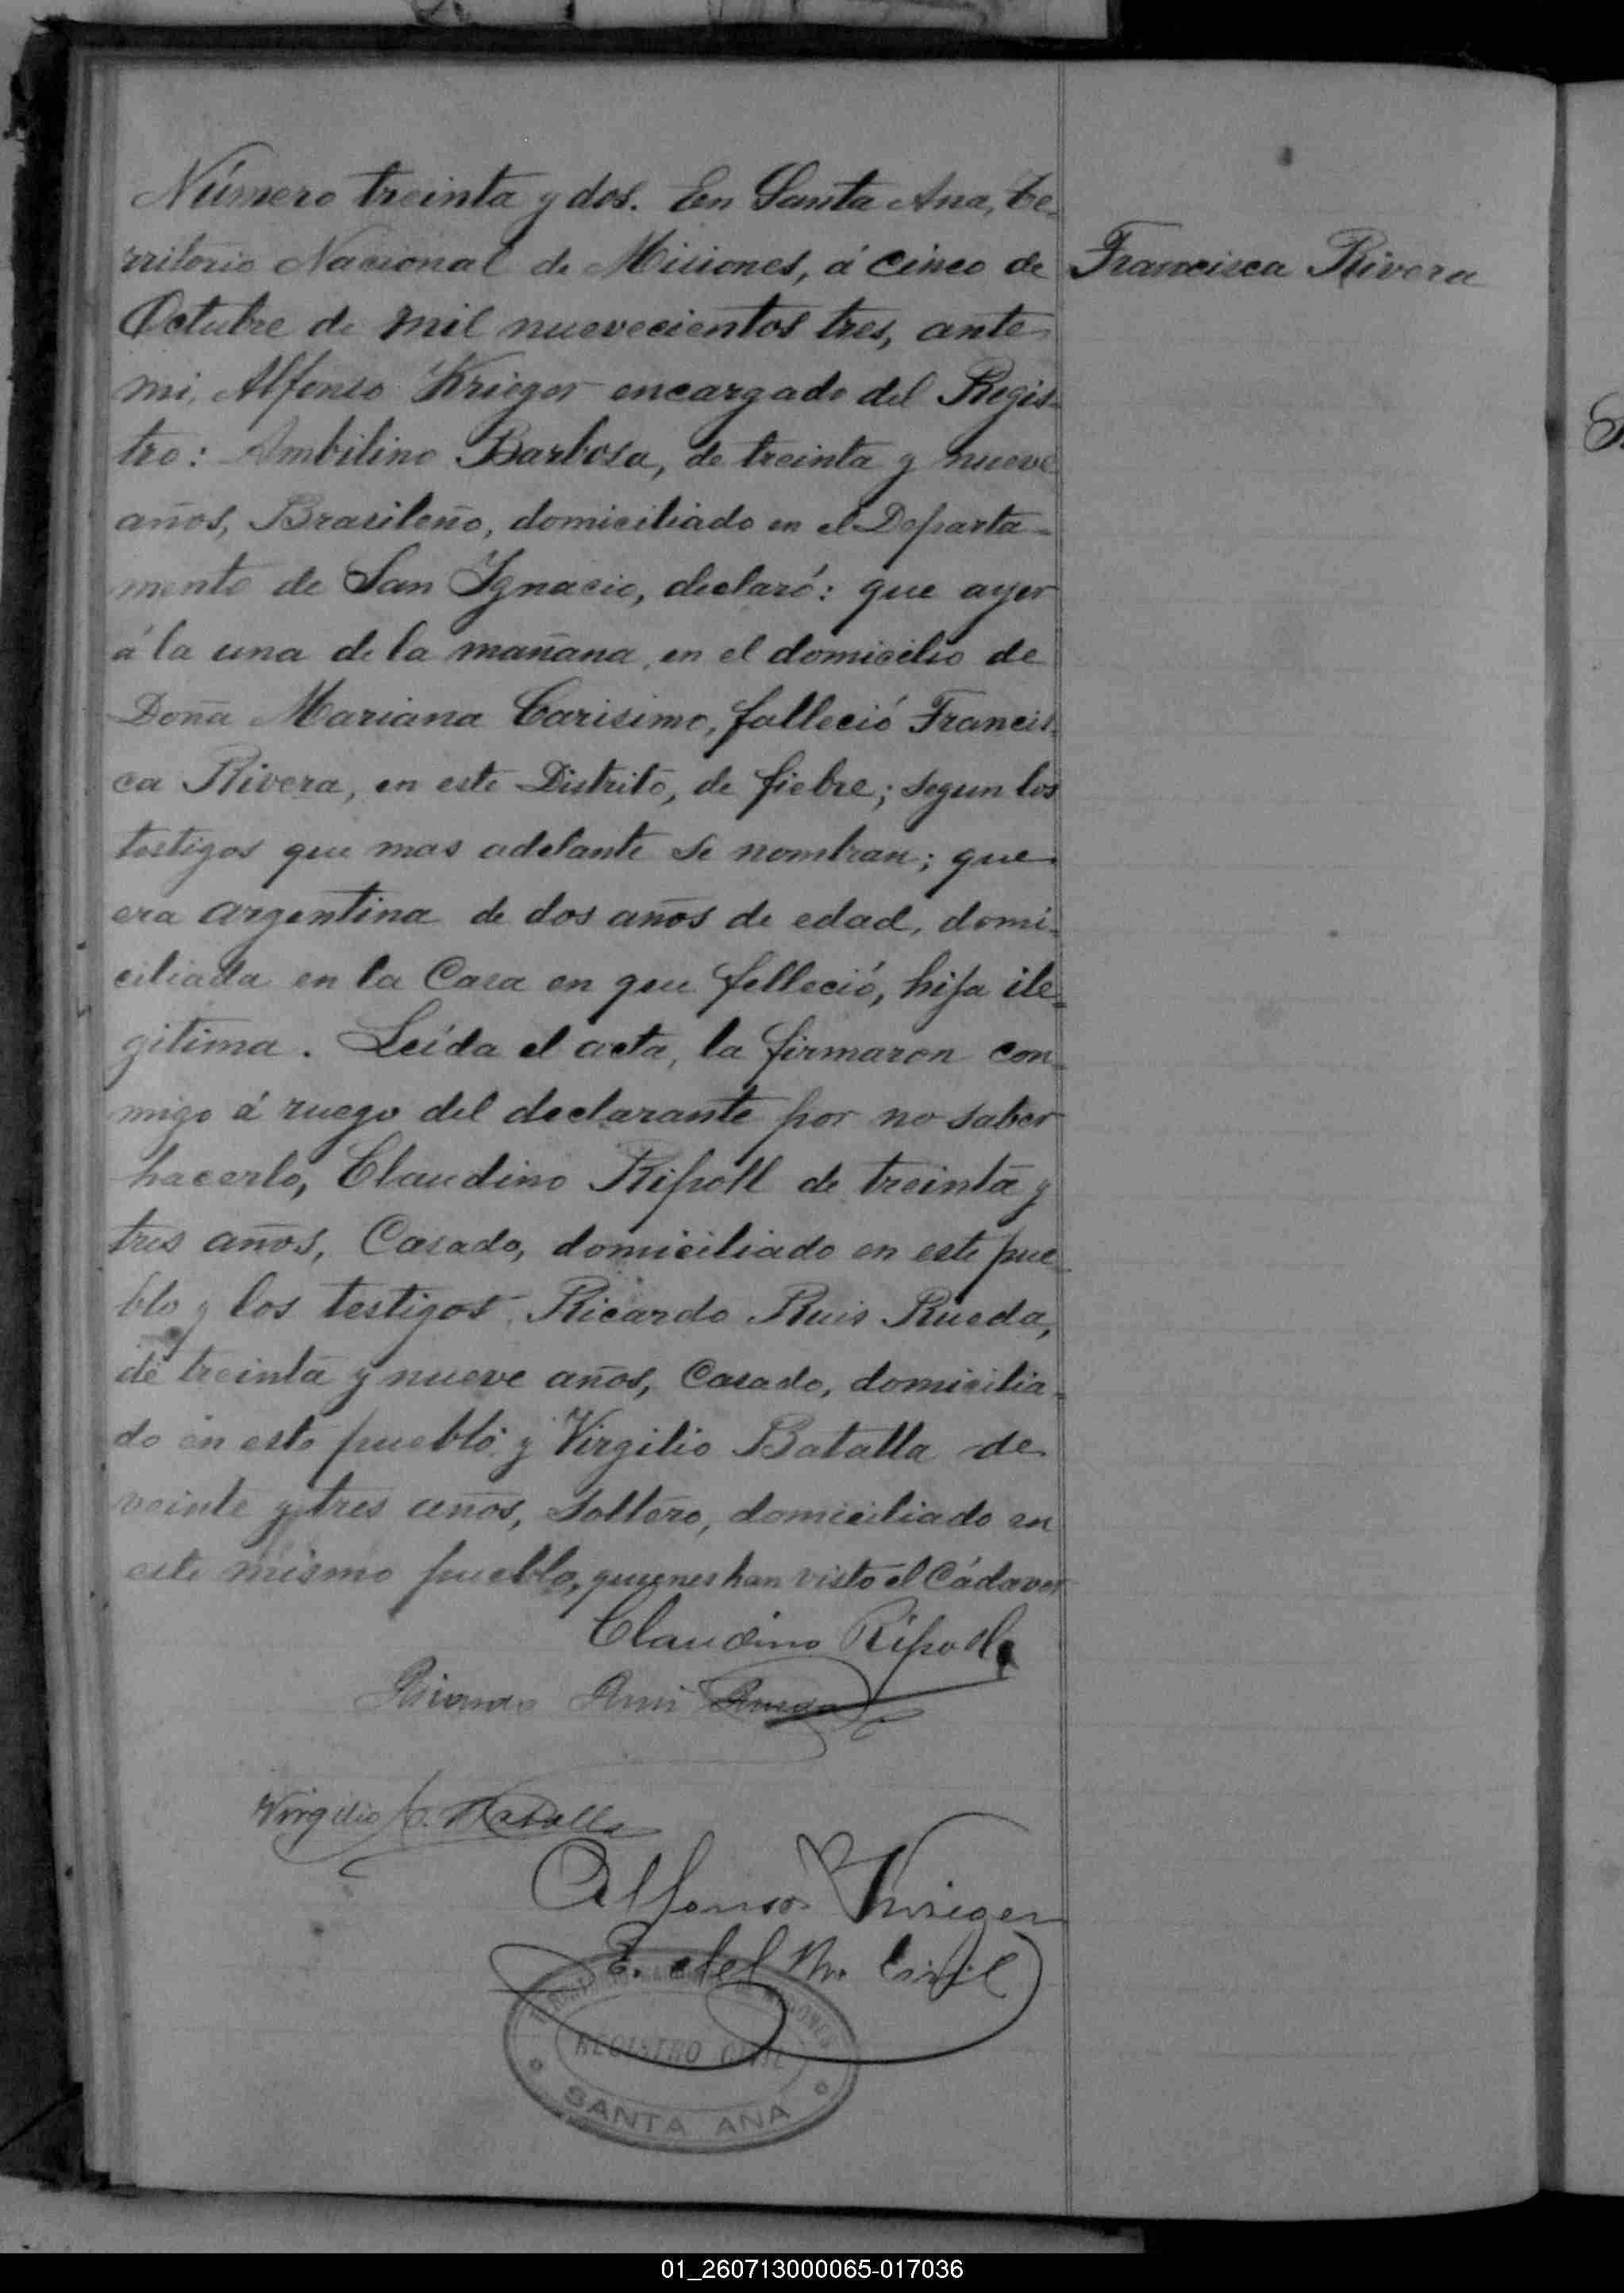 Número treinta y dos. En Santa Ana, Te-
rritorio Nacional de Misiones, á cinco de
Francisca Rivera
Octubre de mil nuevecientos tres, ante
mi, Alfonso Krieger encargado del Regis-
tro: Ambilino Barbosa, de treinta y nueve
años, Brasileño, domiciliado en el Departa-
mento de San Ygnacio, declaró: que ayer
á la una de la mañana, en el domicilio de
Doña Mariana Carisimo, falleció Francis-
ca Rivera, en este Distrito, de fiebre; segun los
testigos que mas adelante se nombran; que
era argentina de dos años de edad, domi-
ciliada en la Casa en que falleció, hija ile-
gitima. Leída el acta, la firmaron con-
migo á ruego del declarante por no saber
hacerlo, Claudino Ripoll de treinta y
tres años, Casado, domiciliado en este pue-
blo y los testigos Ricardo Ruis Rueda,
de treinta y nueve años, Casado, domicilia-
do en este pueblo y Virgilio Batalla de
veinte y tres años, Soltero, domiciliado en
este mismo pueblo, quienes han visto el Cádaver
Claudino Ripoll
Ricardo Ruis Rueda
Virgilio Batalla
Alfonso Krieger
E. del R. Civil
TERRITORIO NACIONAL DE MISIONES
REGISTRO CIVIL
SANTA ANA
01_260713000065-017036